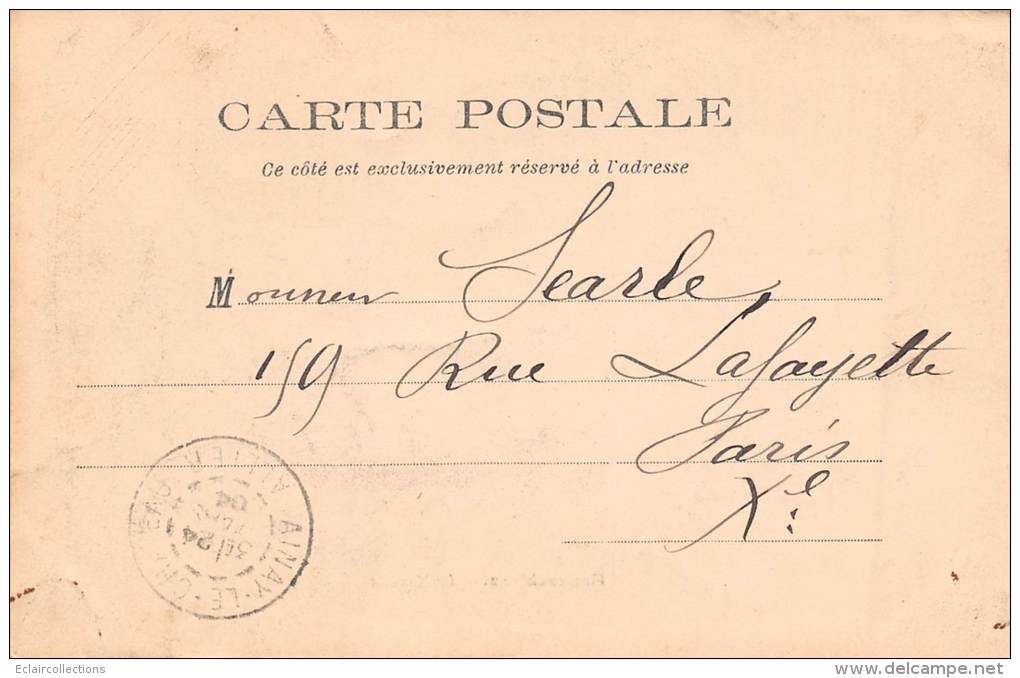 CARTE POSTALE
Ce côté est exclusivement réservé à l'adresse
Monsieur Searle,
159 Rue Lafayette
Paris
Xe
AINAY-LE-CHAU
ALLIER
24
04
Eclaircollections
www.delcampe.net